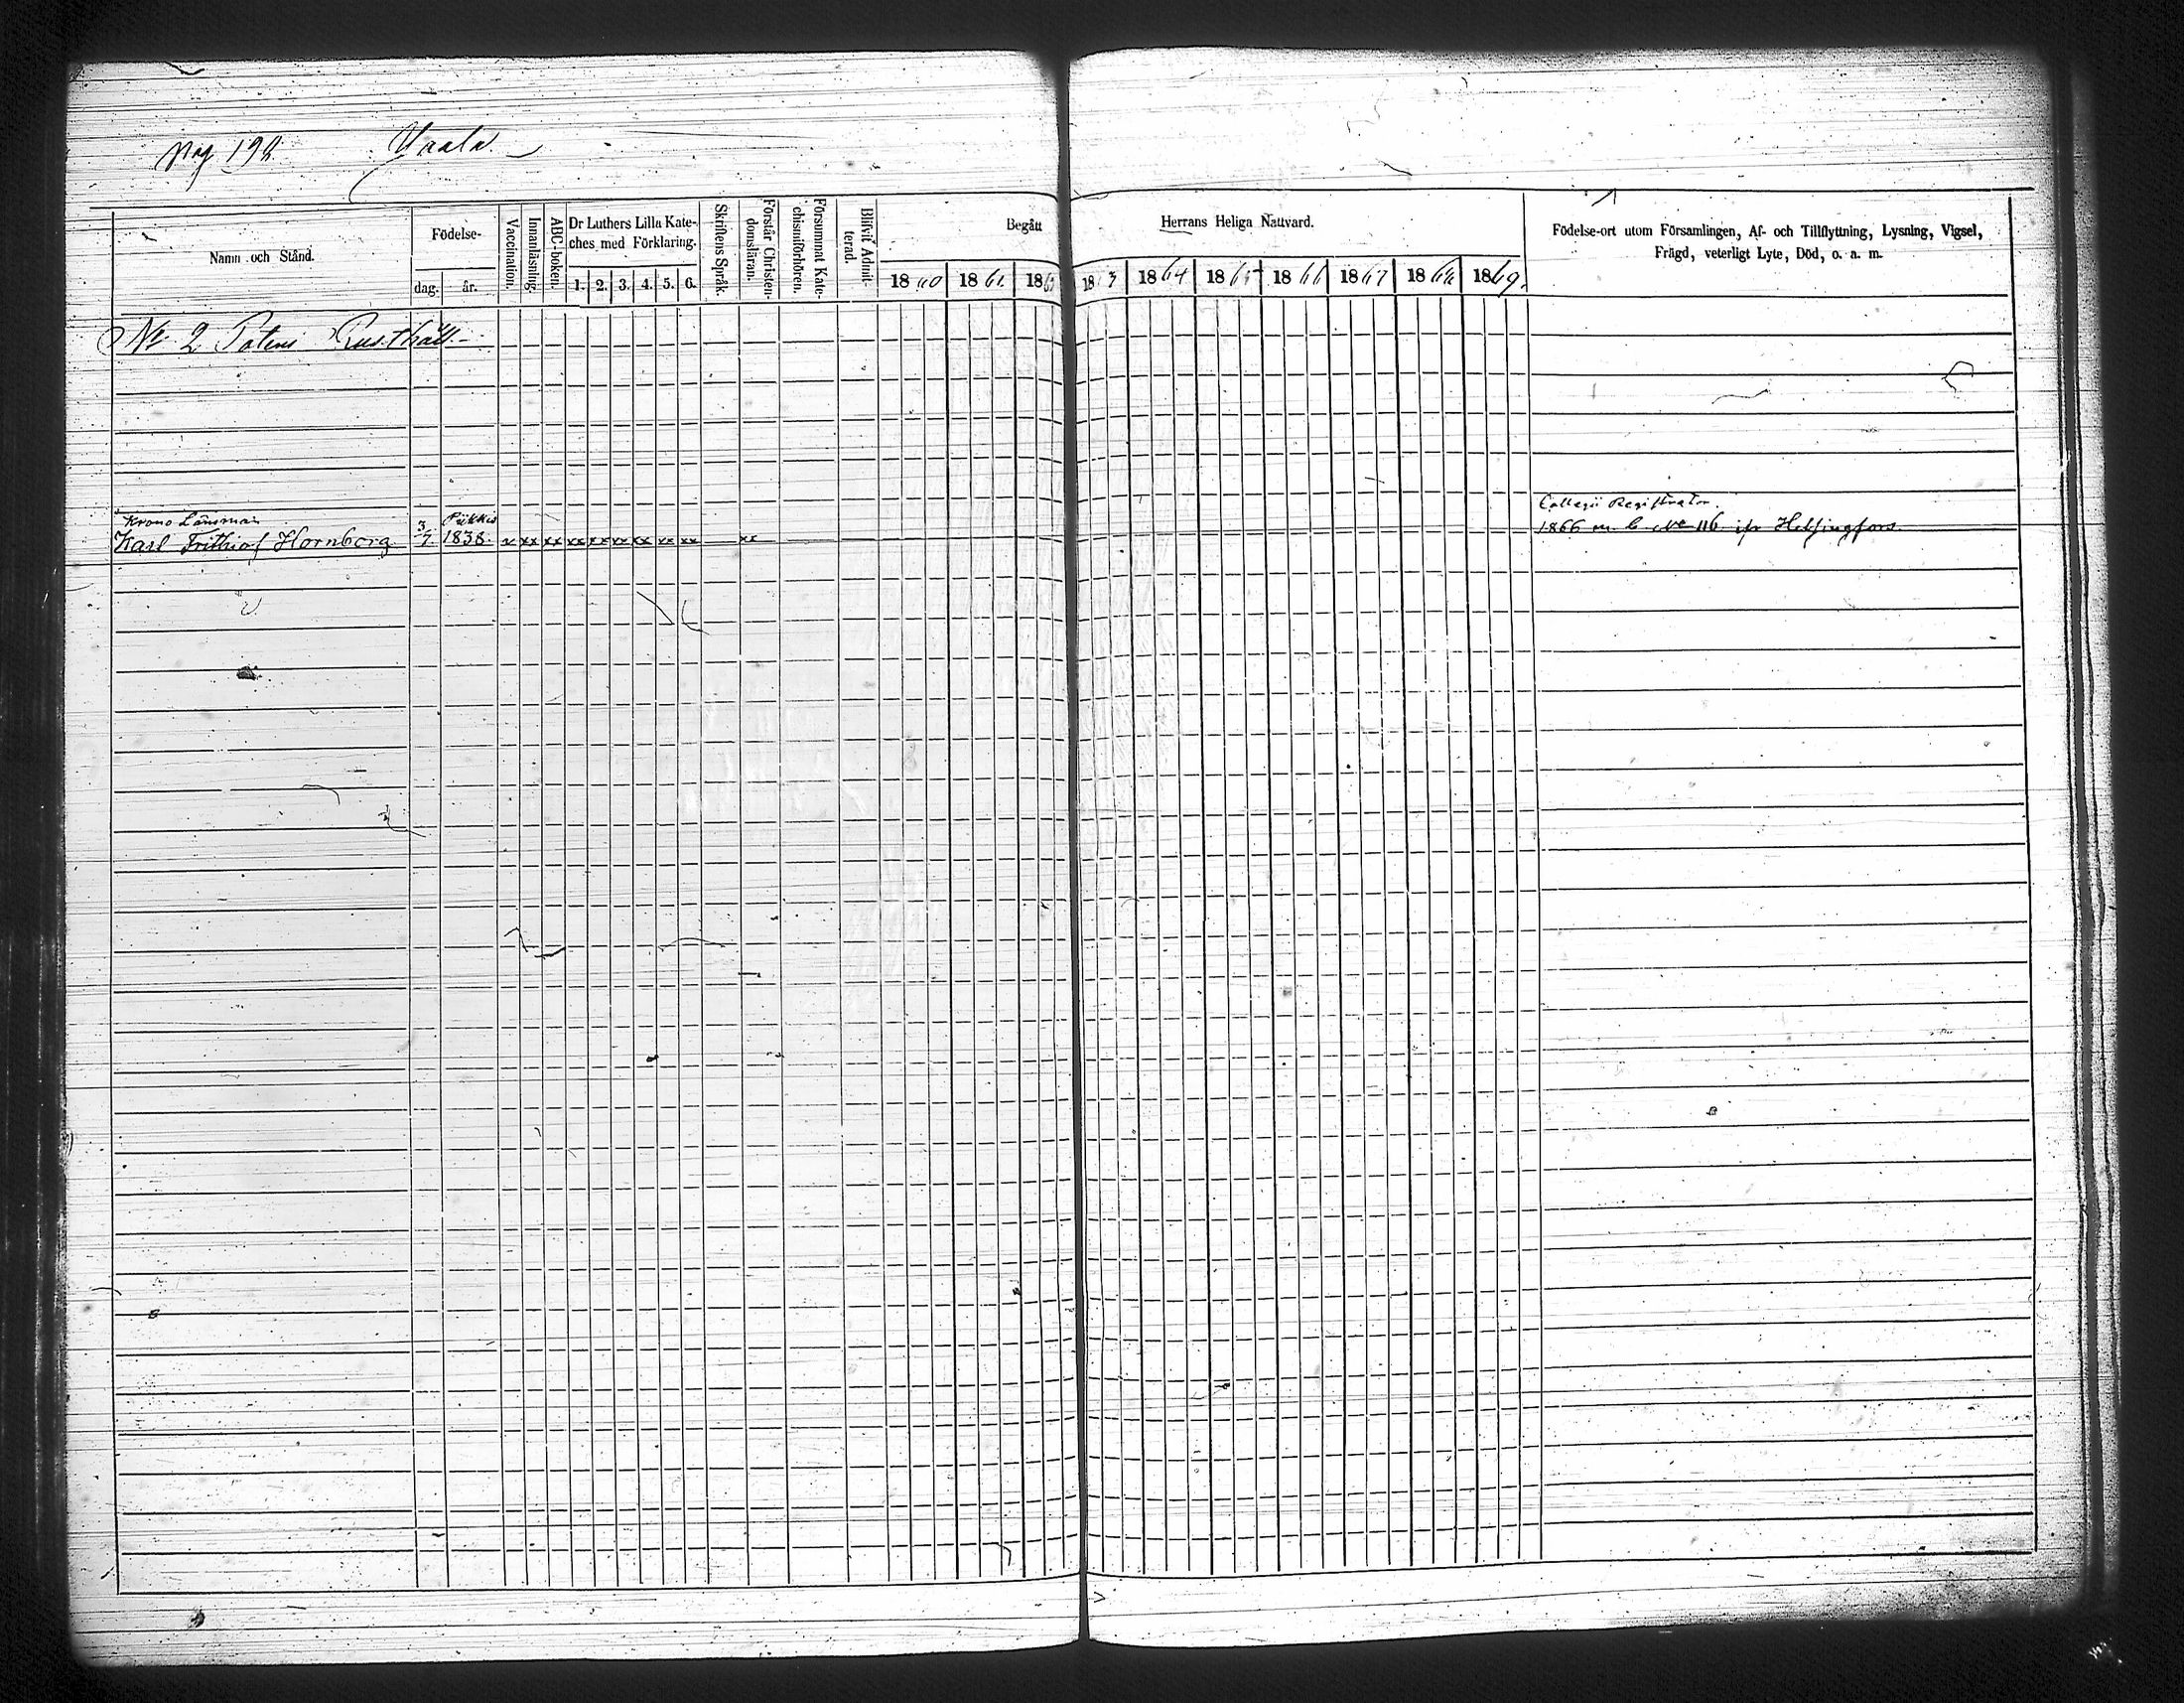 pag 192 Uaala.
Namn och Stånd.
Födelse-
dag. år.
Vaccination.
Innanläsning.
ABC-boken.
Dr Luthers Lilla Kate-
ches med Förklaring.
1. 2. 3. 4. 5. 6.
Skriftens Språk.
Förstår Christen-
domsläran.
Försummat Kate-
chismiförhören.
Blifvit Admit-
terad.
Begått Herrans Heliga Nattvard.
1860 1861. 186 1863 1864 1865 1866 1867 1868 1869.
Födelse-ort utom Församlingen, Af- och Tillflyttning, Lysning, Vigsel,
Frägd, veterligt Lyte, Död, o. a. m.
No 2 Rusthåll.
Krono Länsman Pikkis Collegii Registrator.
Karl Frithiof Hornborg 3/7 1838. x xx xx xx xx xx xx xx xx xx 1866 m. b. No 116 ifr Helsingfors.